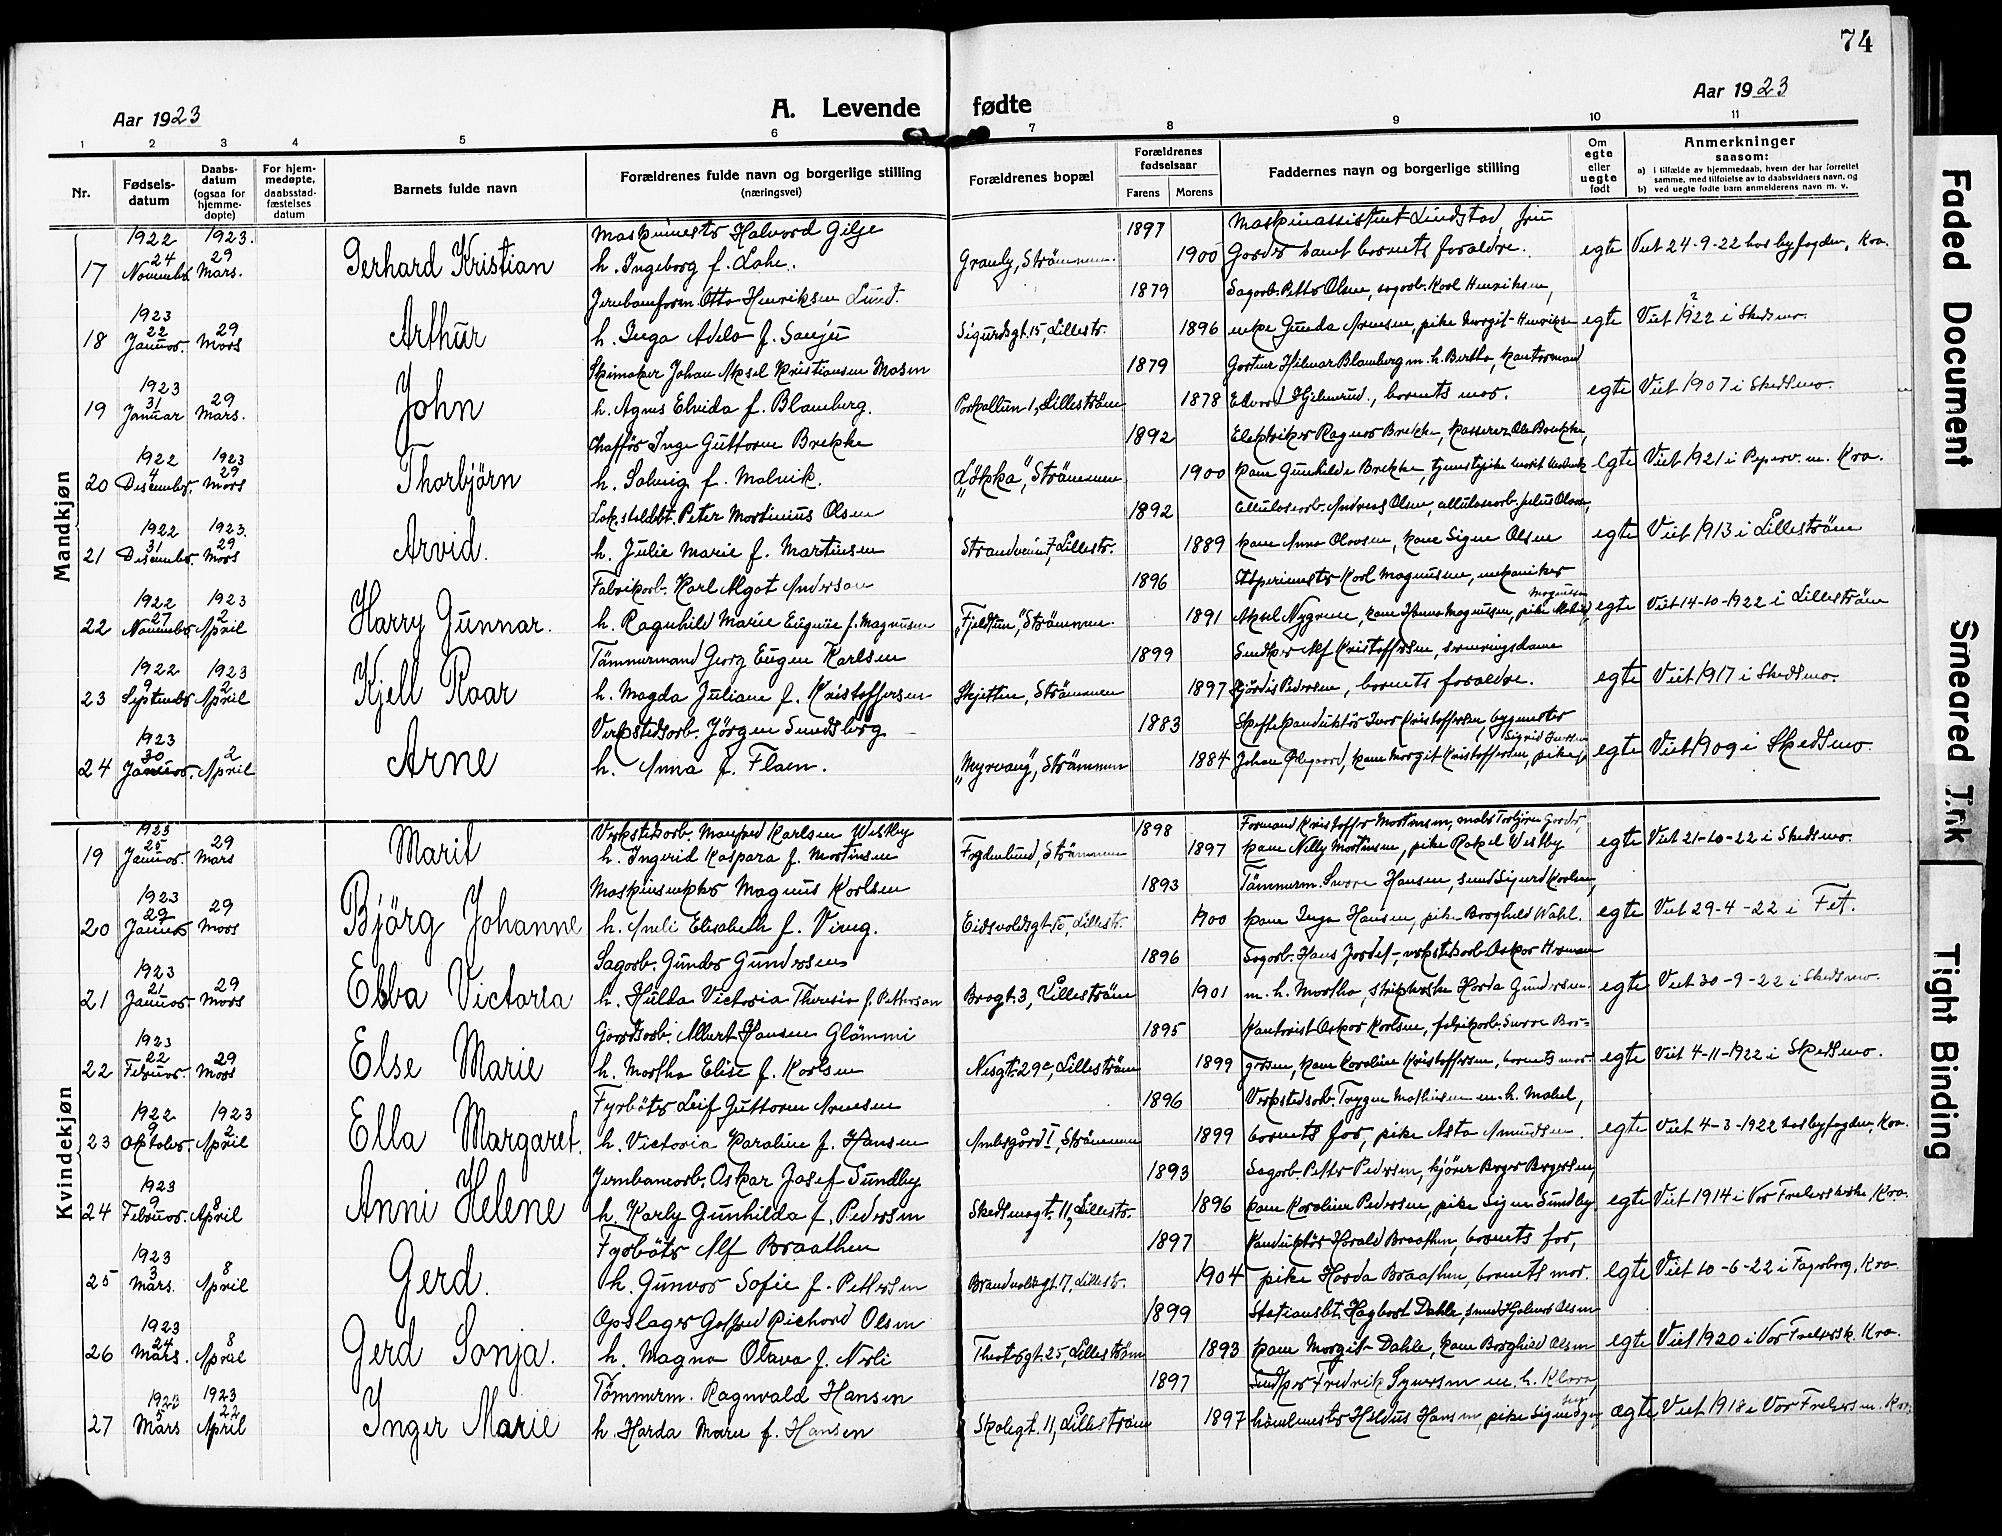 74
Aar 1923
A. Levende fødte
Aar 1923
1 2 3 4 5 6 7 8 9 10 11
Nr.
Fødsels-
datum
Daabs-
datum
(ogsaa for
hjemme-
døpte)
For hjem-
medøpte,
daabsstad-
fæstelses
datum
Barnets fulde navn
Forældrenes fulde navn og borgerlige stilling
(næringsvei)
Forældrenes bopæl
Forældrenes
fødselsaar
Farens Morens
Faddernes navn og borgerlige stilling
Om
egte
eller
uegte
født
Anmerkninger
saasom:
a) i tilfælde av hjemmedaab, hvem der har forrettet
samme, med tilføielse av to daabsvidners navn, og
b) ved uegte fødte barn anmelderens navn m. v.
Mandkjøn
1922 1923. Maskinmester Halvord Gilje 1897 Maskinassistent Lindstad, fru
17 24 Novembr. 29 Mars. Gerhard Kristian h. Ingeborg f. Lohe. Granly, Strömmen. 1900 Gorder samt barnets foraldre. egte Viet 24-9-22 hos byfogden, Kra.
1923 Jernbaneform. Otto Henriksen Lund. 1879 Sagarb. Petter Olsen, sagarb. Karl Henriksen,
18 22 Januar. 29 Mars Arthur h. Inga Adela f. Sigurdsgt. 15, Lillestr. 1896 enke Gunda Arnesen, pike Margit Henriksen egte Viet 1922 ? i Skedsmo.
1923 Skimaker Johan Aksel Kristiansen Mosen 1879 Gartner Hilmar Blomberg m. h. Bertha, kontormand
19 31 Januar 29 Mars. John h. Agnes Elvida f. Blomberg. Lilleström 1878 Edvard barnets mor. egte Viet 1907 i Skedsmo.
1922 1923 Chafför Inge Guttorm Brekke 1892 Elektriker Ragnar Brekke, kasserer Ole Brekke,
20 4 Desember. 29 Mars Thorbjörn h. Solveig f. Malvik. „Løkka", Strömmen 1900 kone Gunhilde Brekke, tjenestepike egte Viet 1921 i Piperv. m. Kra.
1922 1923. Peter Martinius Olsen 1892 Andreas Olsen, Julius Olsen,
21 31 Desember. 29 Mars Arvid. h. Julie Marie f. Martinsen Strandveien 7, Lillestr. 1889 kone Anna Olavsen, kone Signe Olsen egte Viet 1913 i Lilleström
1922 1923 Fabrikarb. Karl Algot Anderson 1896 Karl Magnusen, mekaniker
22 27 Novembr 2 April Harry Gunnar. h. Ragnhild Marie Eugenie f. Magnusen „Fjeldtun," Strömmen. 1891 Aksel Nygren, kone Hanna Magnusen, pike Magnusen egte Viet 14-10-1922 i Lilleström
1922 1923 Tömmermand Georg Eugen Karlsen 1899 Snedker Alf Kristoffersen, serveringsdame
23 9 September 2 April Kjell Roar h. Magda Juliane f. Kristoffersen Skjetten, Strömmen 1897 Hjördis Pedersen, barnets foraldre. egte Viet 1917 i Skedsmo.
1923 Verkstedsarb. Jörgen Sundsberg 1883 Ivar Kristoffersen, bygmester
24 30 Januar. 2 April Arne h. Anna f. Flaen. „Myrvang", Strömmen 1884 Johan kone Margit Kristoffersen, pike Sigrid egte Viet 1909 i Skedsmo.
Kvindekjøn
1923 Verkstedsarb. Manfred Karlsen Westby 1898 Formand Kristoffer Martinsen, maler Torbjörn
19 25 Januar. 29 Mars Marit h. Ingerid Kaspara f. Martinsen Fogdenlund, Strömmen 1897 kone Nelly Martinsen, pike Rakel Westby egte Viet 21-10-22 i Skedsmo.
1923 Maskinsnekker Magnus Karlsen 1893 Tömmerm. Sverre Hansen, snedk. Sigurd Karlsen,
20 29 Januar 29 Mars Björg Johanne h. Anli Elisabeth f. Eidsvoldsgt. 15, Lillestr. 1900 kone Inga Hansen, pike Borghild Wahl. egte Viet 29-4-22 i Fet.
1923 Sagarb. Gunder Gundersen 1896 Sagarb. Hans verkstedsarb. Oskar Herman
21 21 Januar. 29 Mars Ebba Victoria h. Hulda Victoria Theresia f. Petterson Bragt. 3, Lilleström 1901 m. h. Martha, Harda Gundersen. egte Viet 30-9-22 i Skedsmo.
1923 Gaardsarb. Albert Hansen Glömmi 1895 Kontorist Oskar Karlsen, fabrikarb. Sverre Bor-
22 22 Februar. 29 Mars Else Marie h. Martha Elise f. Karlsen Nesgt. 29c, Lilleström 1899 gersen, kone Karoline Kristoffersen, barnets mor egte Viet 4-11-1922 i Skedsmo.
1922 1923 Fyrböter Leif Guttorm Arnesen 1896 Verkstedsarb. Trygve Mathisen m. h. Mabel,
23 9 Oktober. 2 April Ella Margaret. h. Victoria Karoline f. Hansen Strömmen 1899 barnets far, pike Asta Amundsen. egte Viet 4-3-1922 hos byfogden, Kra.
1923 Jernbanearb. Oskar Josef Sundby 1893 Sagarb. Petter Pedersen, kjörer Birger Birgersen,
24 9 Februar. 8 April Anni Helene h. Karly Gunhilda f. Pedersen Skedsmogt. 11, Lillestr. 1896 kone Karoline Pedersen, pike Signe Sundby egte Viet 1914 i Vor Frelserskirke, Kra.
1923 Fyrböter Alf Braathen 1897 Konduktör Harald Braathen, barnets far,
25 3 Mars. 8 April Gerd. h. Gunvor Sofie f. Pettersen Brandvoldsgt. 17, Lillestr. 1904 pike Harda Braathen, barnets mor. egte Viet 10-6-22 i Fagerborg, Kra.
1923 Opslager Gotfred Richard Olsen 1899 Stationsbt. Hagbart Dahle, snedk. Hjalmar Olsen
26 24 Mars. 8 April Gerd Sonja. h. Magna Olava f. Nerli Theatergt. 25, Lilleström 1893 kone Margit Dahle, kone Borghild Olsen egte Viet 1920 i Vor Frelsersk. Kra.
1923 1923 Tömmerm. Ragnvald Hansen 1897 Snedker Fredrik Syversen m. h. Klara,
27 5 Mars 22 April Inger Marie h. Harda Marie f. Hansen Skolegt. 11, Lilleström 1897 Heldus Hansen, pike Signe ægte Viet 1918 i Vor Frelsers m. Kra.
Faded Document
Smeared Ink
Tight Binding